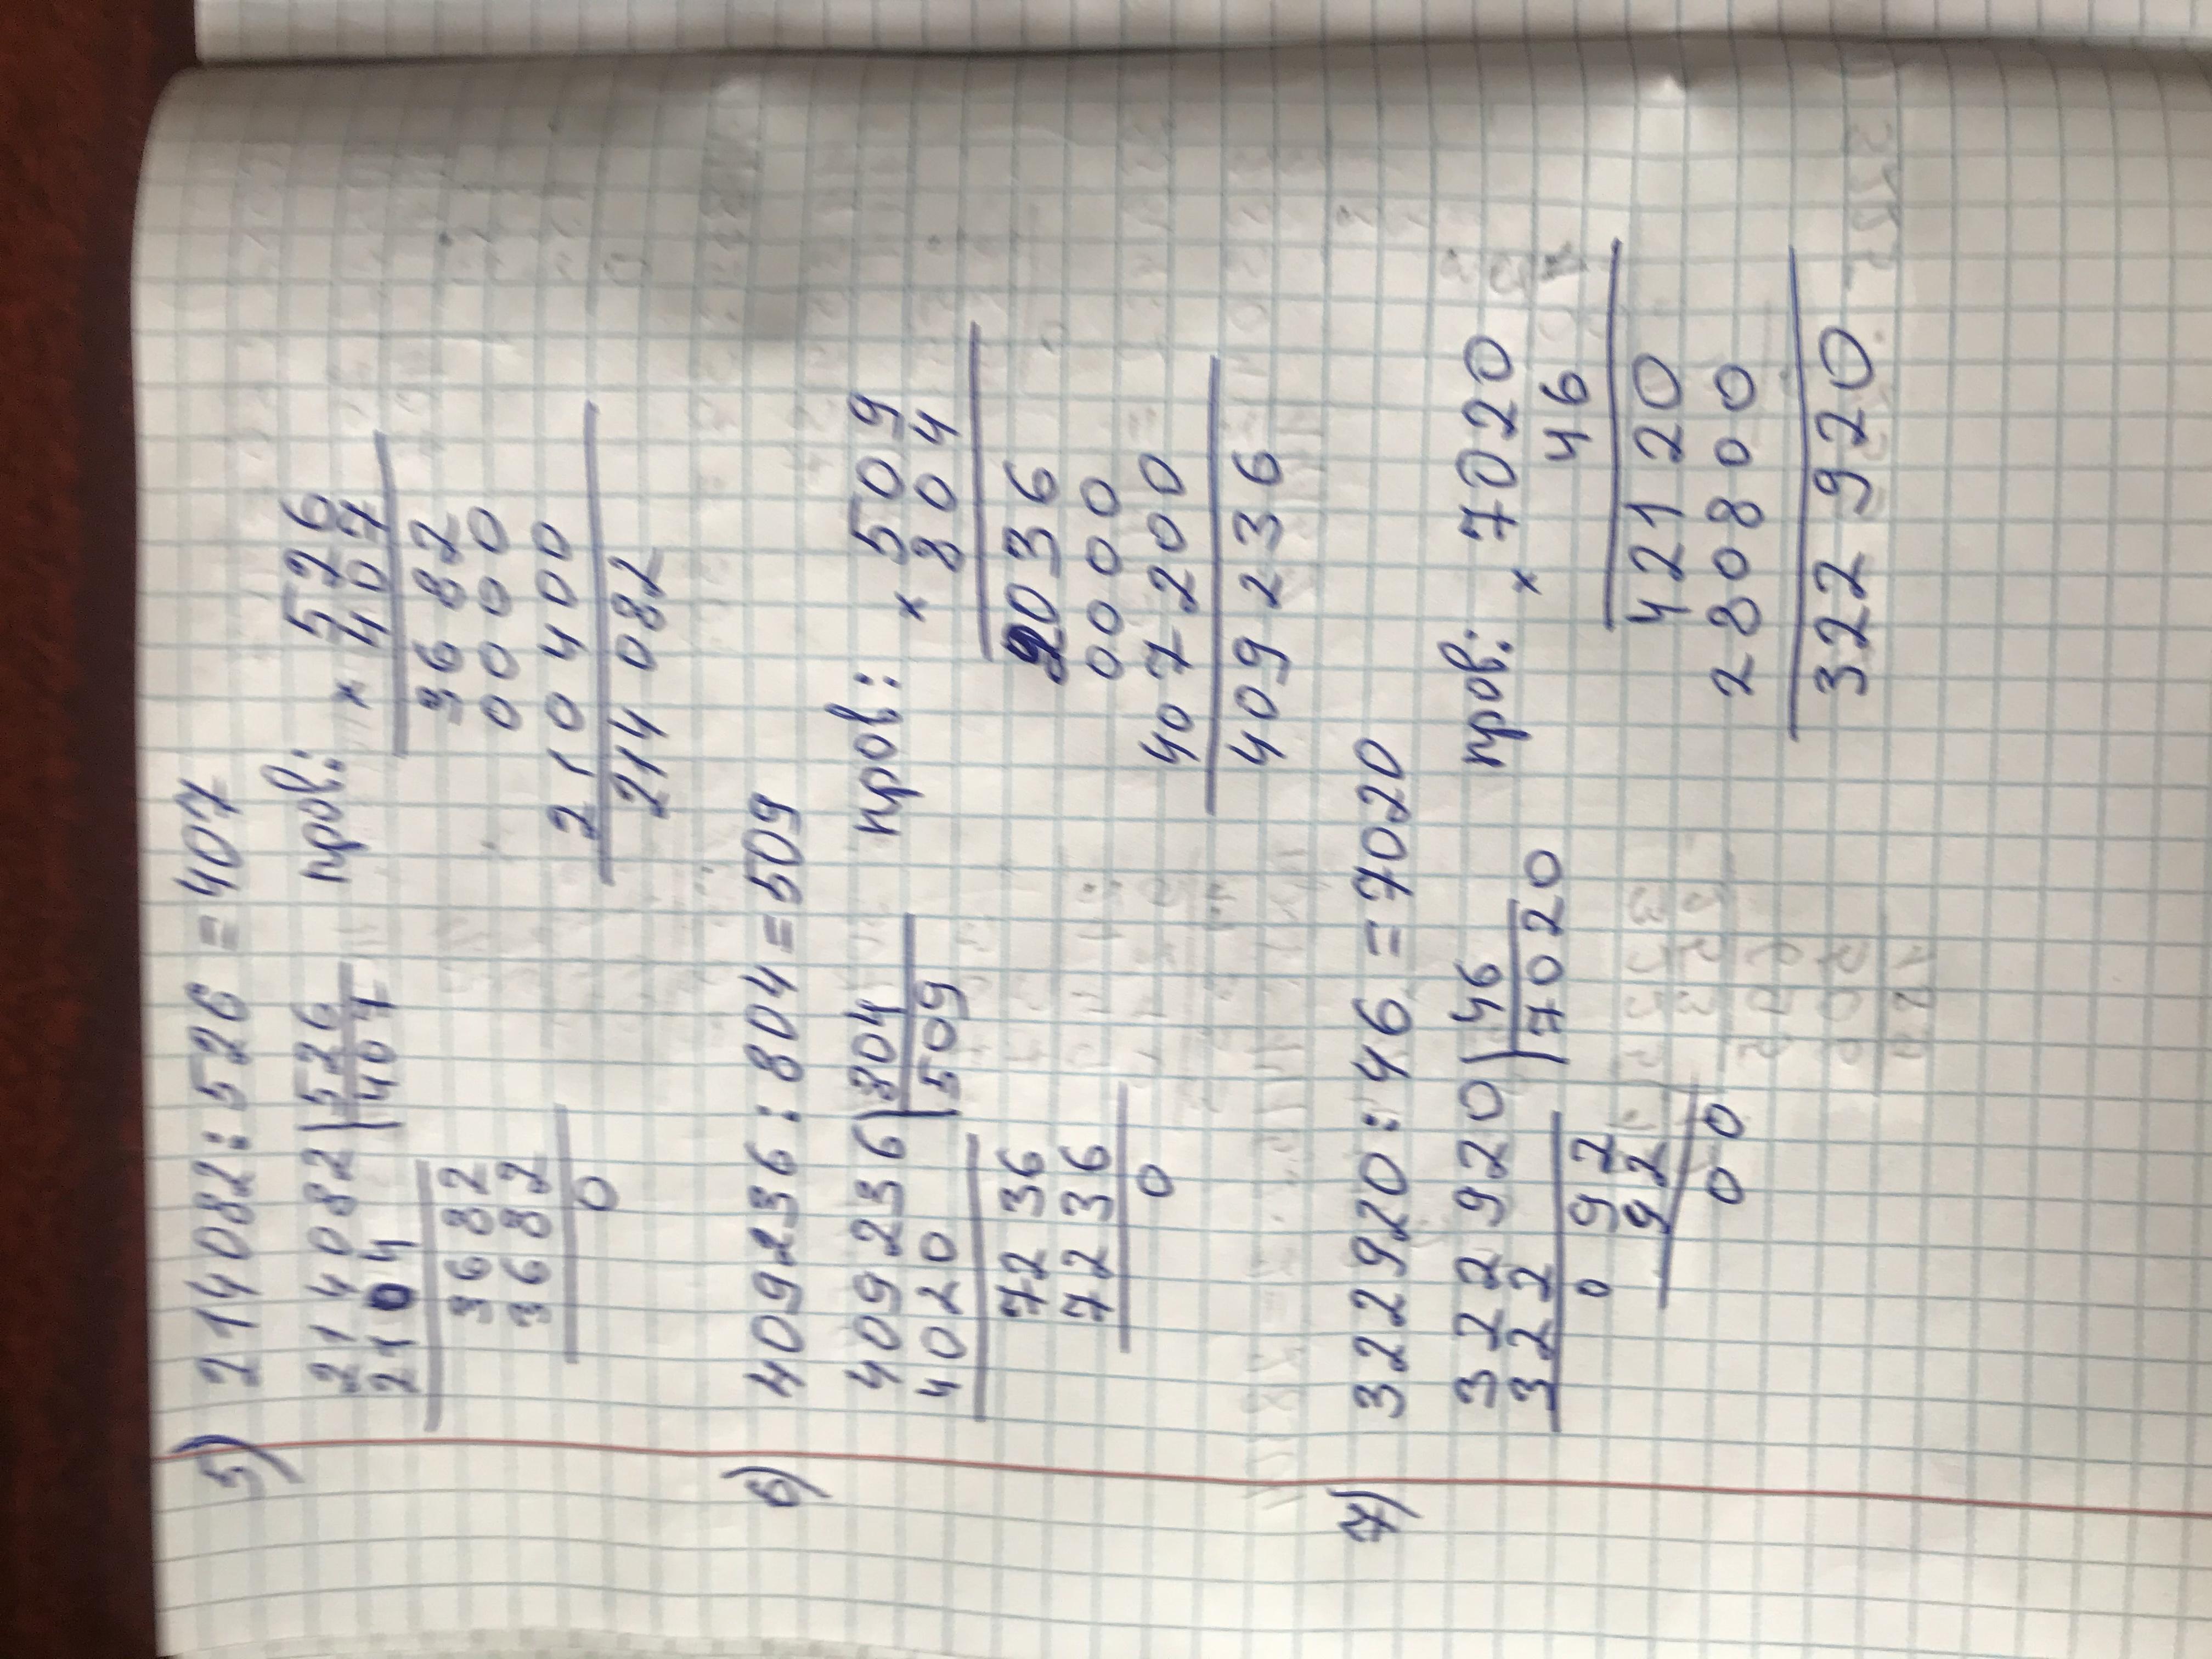 5) 214082:526 =407
214082 526 пров: × 526
2104 407 407
3682 3682
3682 0000
0 210400
214 082
6) 409236:804=509
409236 804 пров: × 509
4020 509 804
7236 2036
7236 0000
0 407200
409236
7) 322920:46=7020
322920 46 пров: × 7020
322 7020 46
0 92 42120
92 280800
00 322920